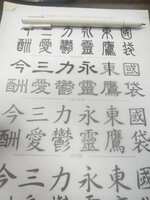 今三力永東國
酬愛鬱靈鷹袋
今三力永東國
酬愛鬱靈鷹袋
今三力永東國
酬愛鬱靈鷹袋
今三力永東國